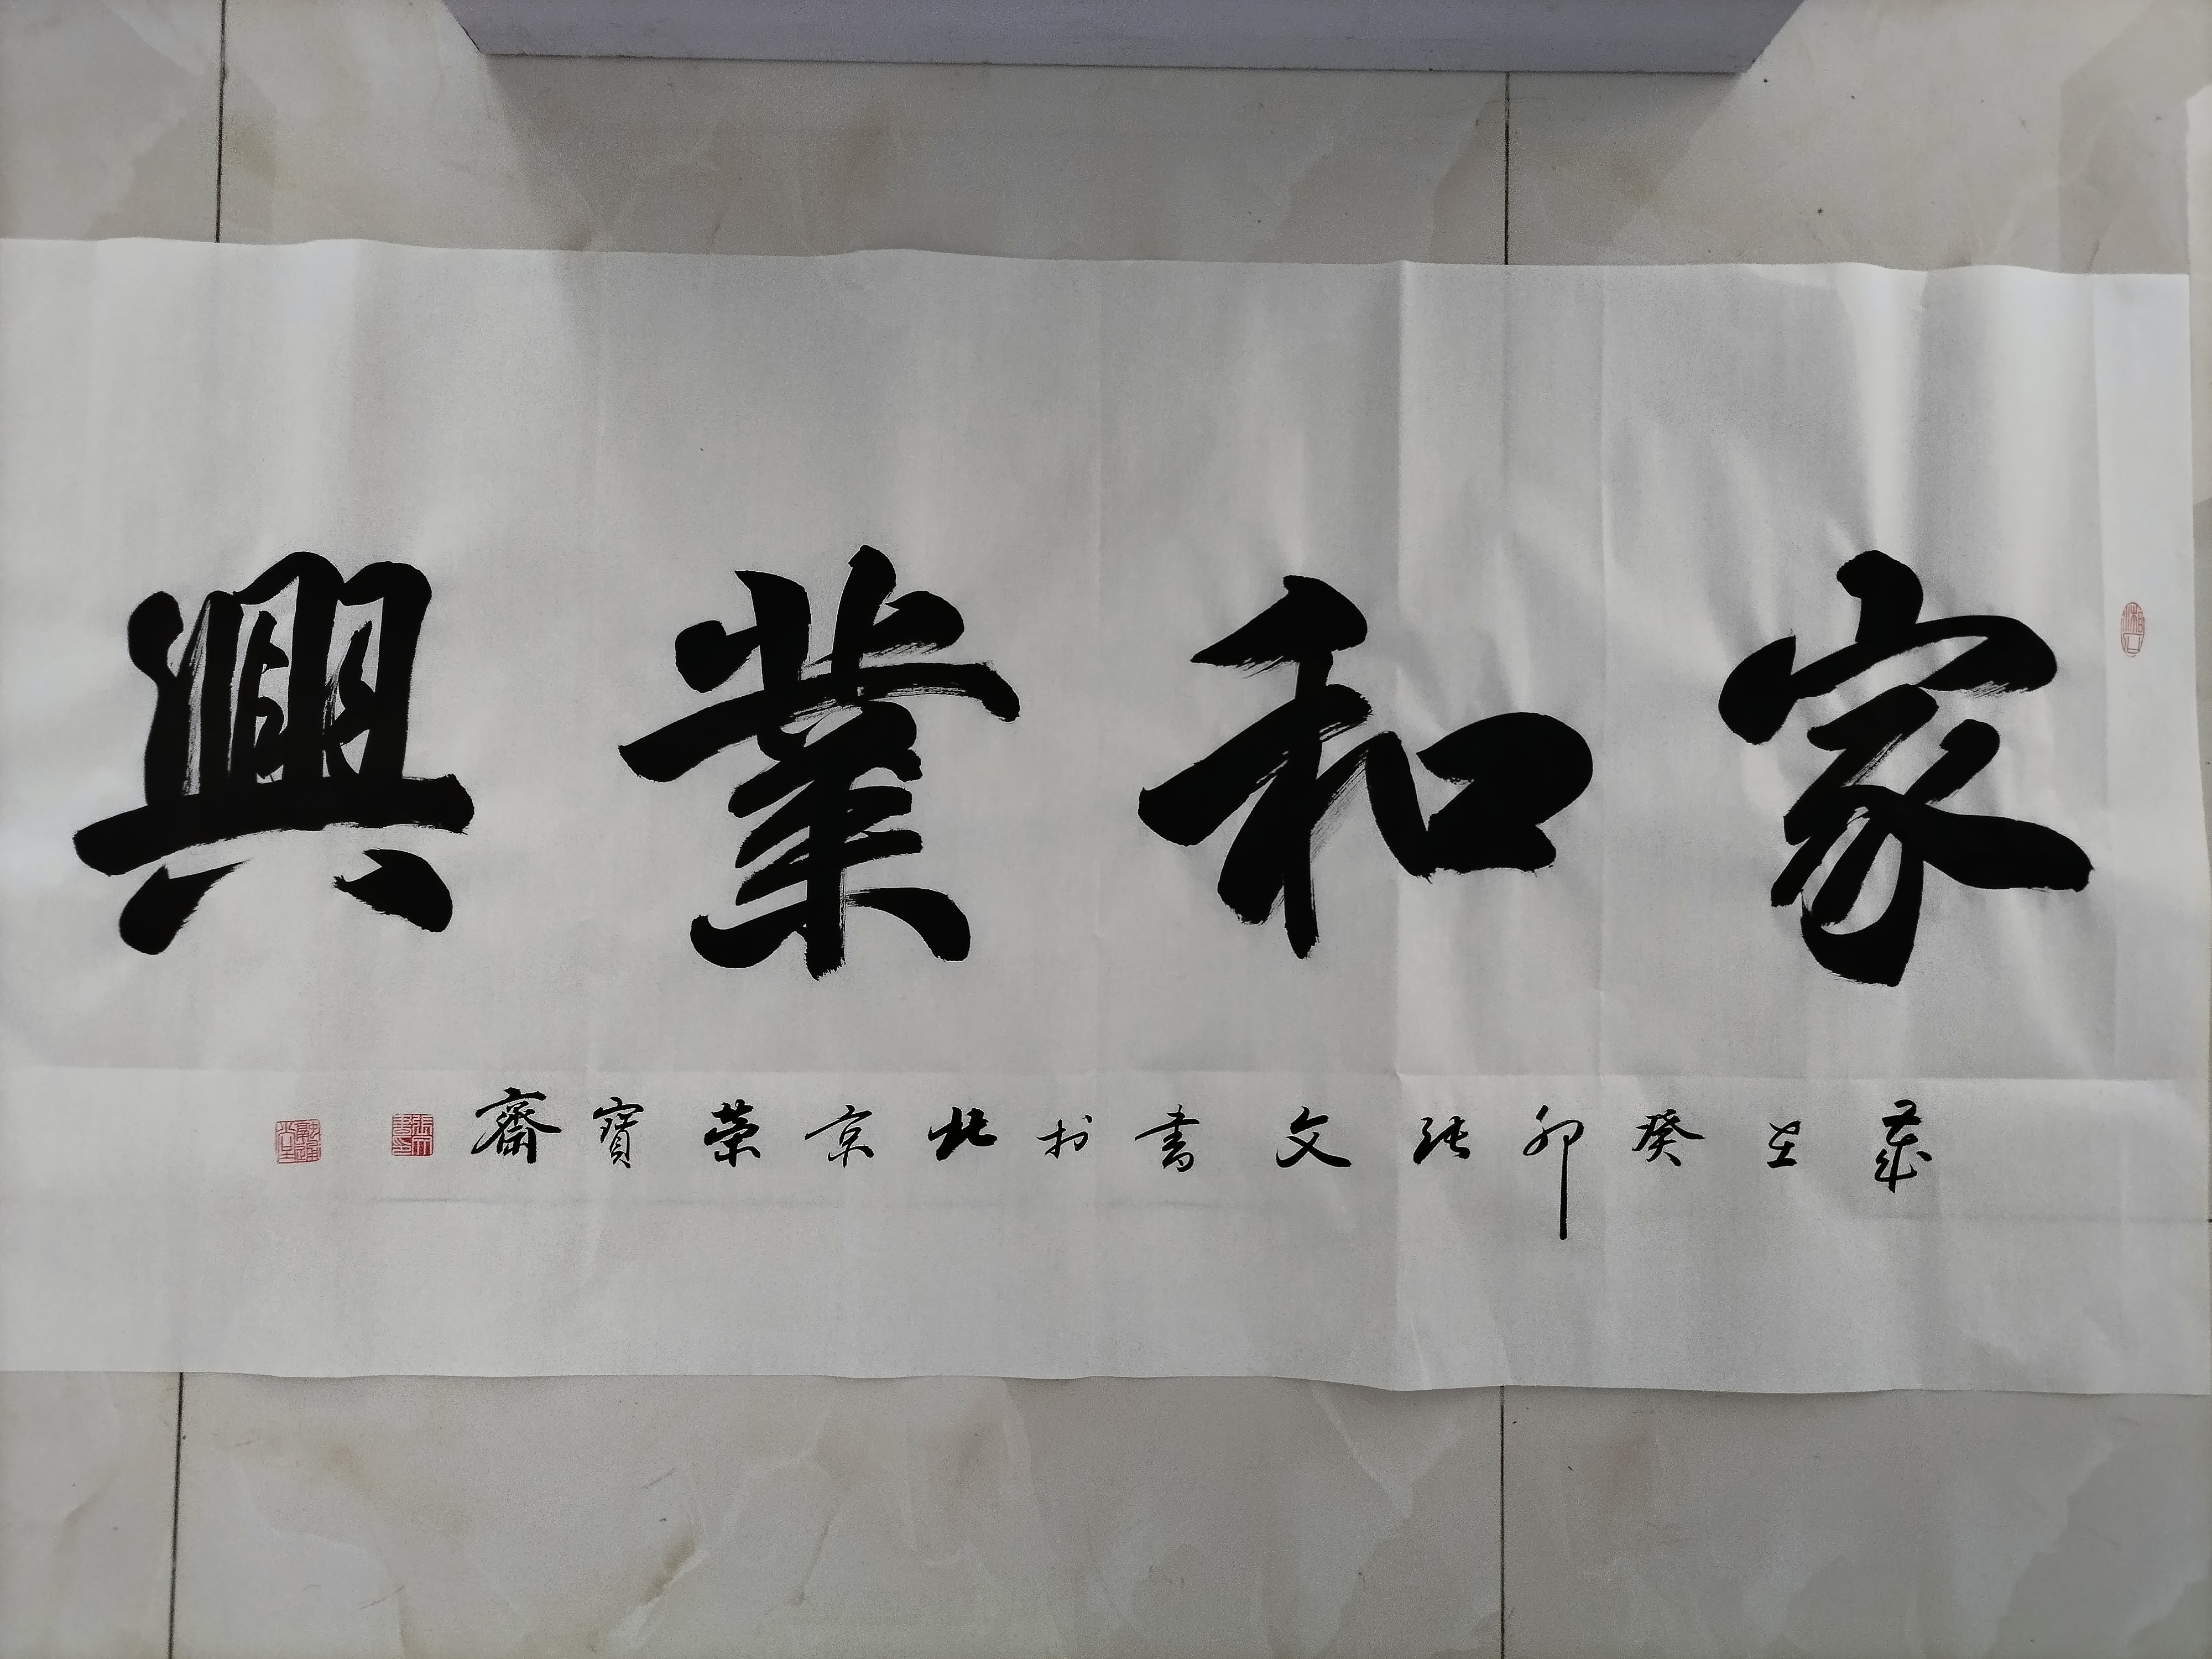 家和業興
歲在癸卯張文書於北京榮寶齋